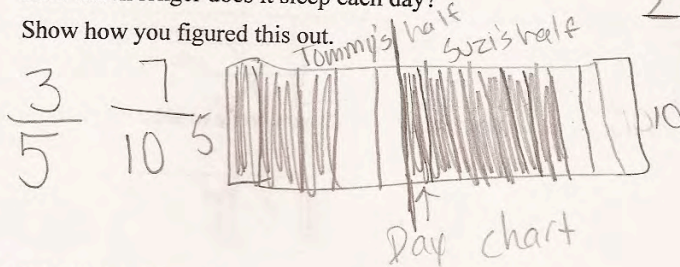 Show how you figured this out.
Tommy's half
Suzi's half
3
5
7
10
5
10
Day chart